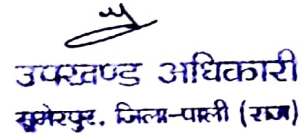 उपखण्ड अधिकारी
सुमेरपुर, जिला-पाली (राज)